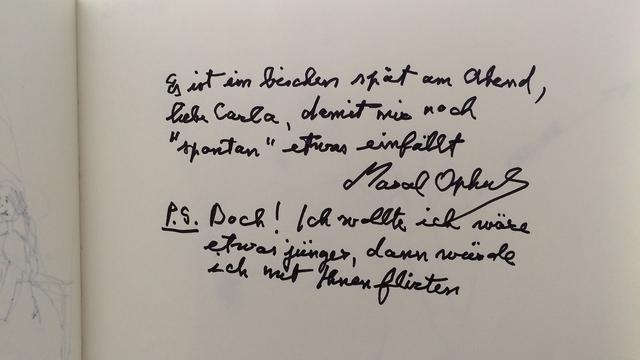 Es ist ein bischen spät am Abend,
liebe Carla, damit mir noch
"spontan" etwas einfällt
Marcel Ophuls
P.S. Doch! Ich wollte, ich wäre
etwas jünger, dann würde
ich mit Ihnen flirten